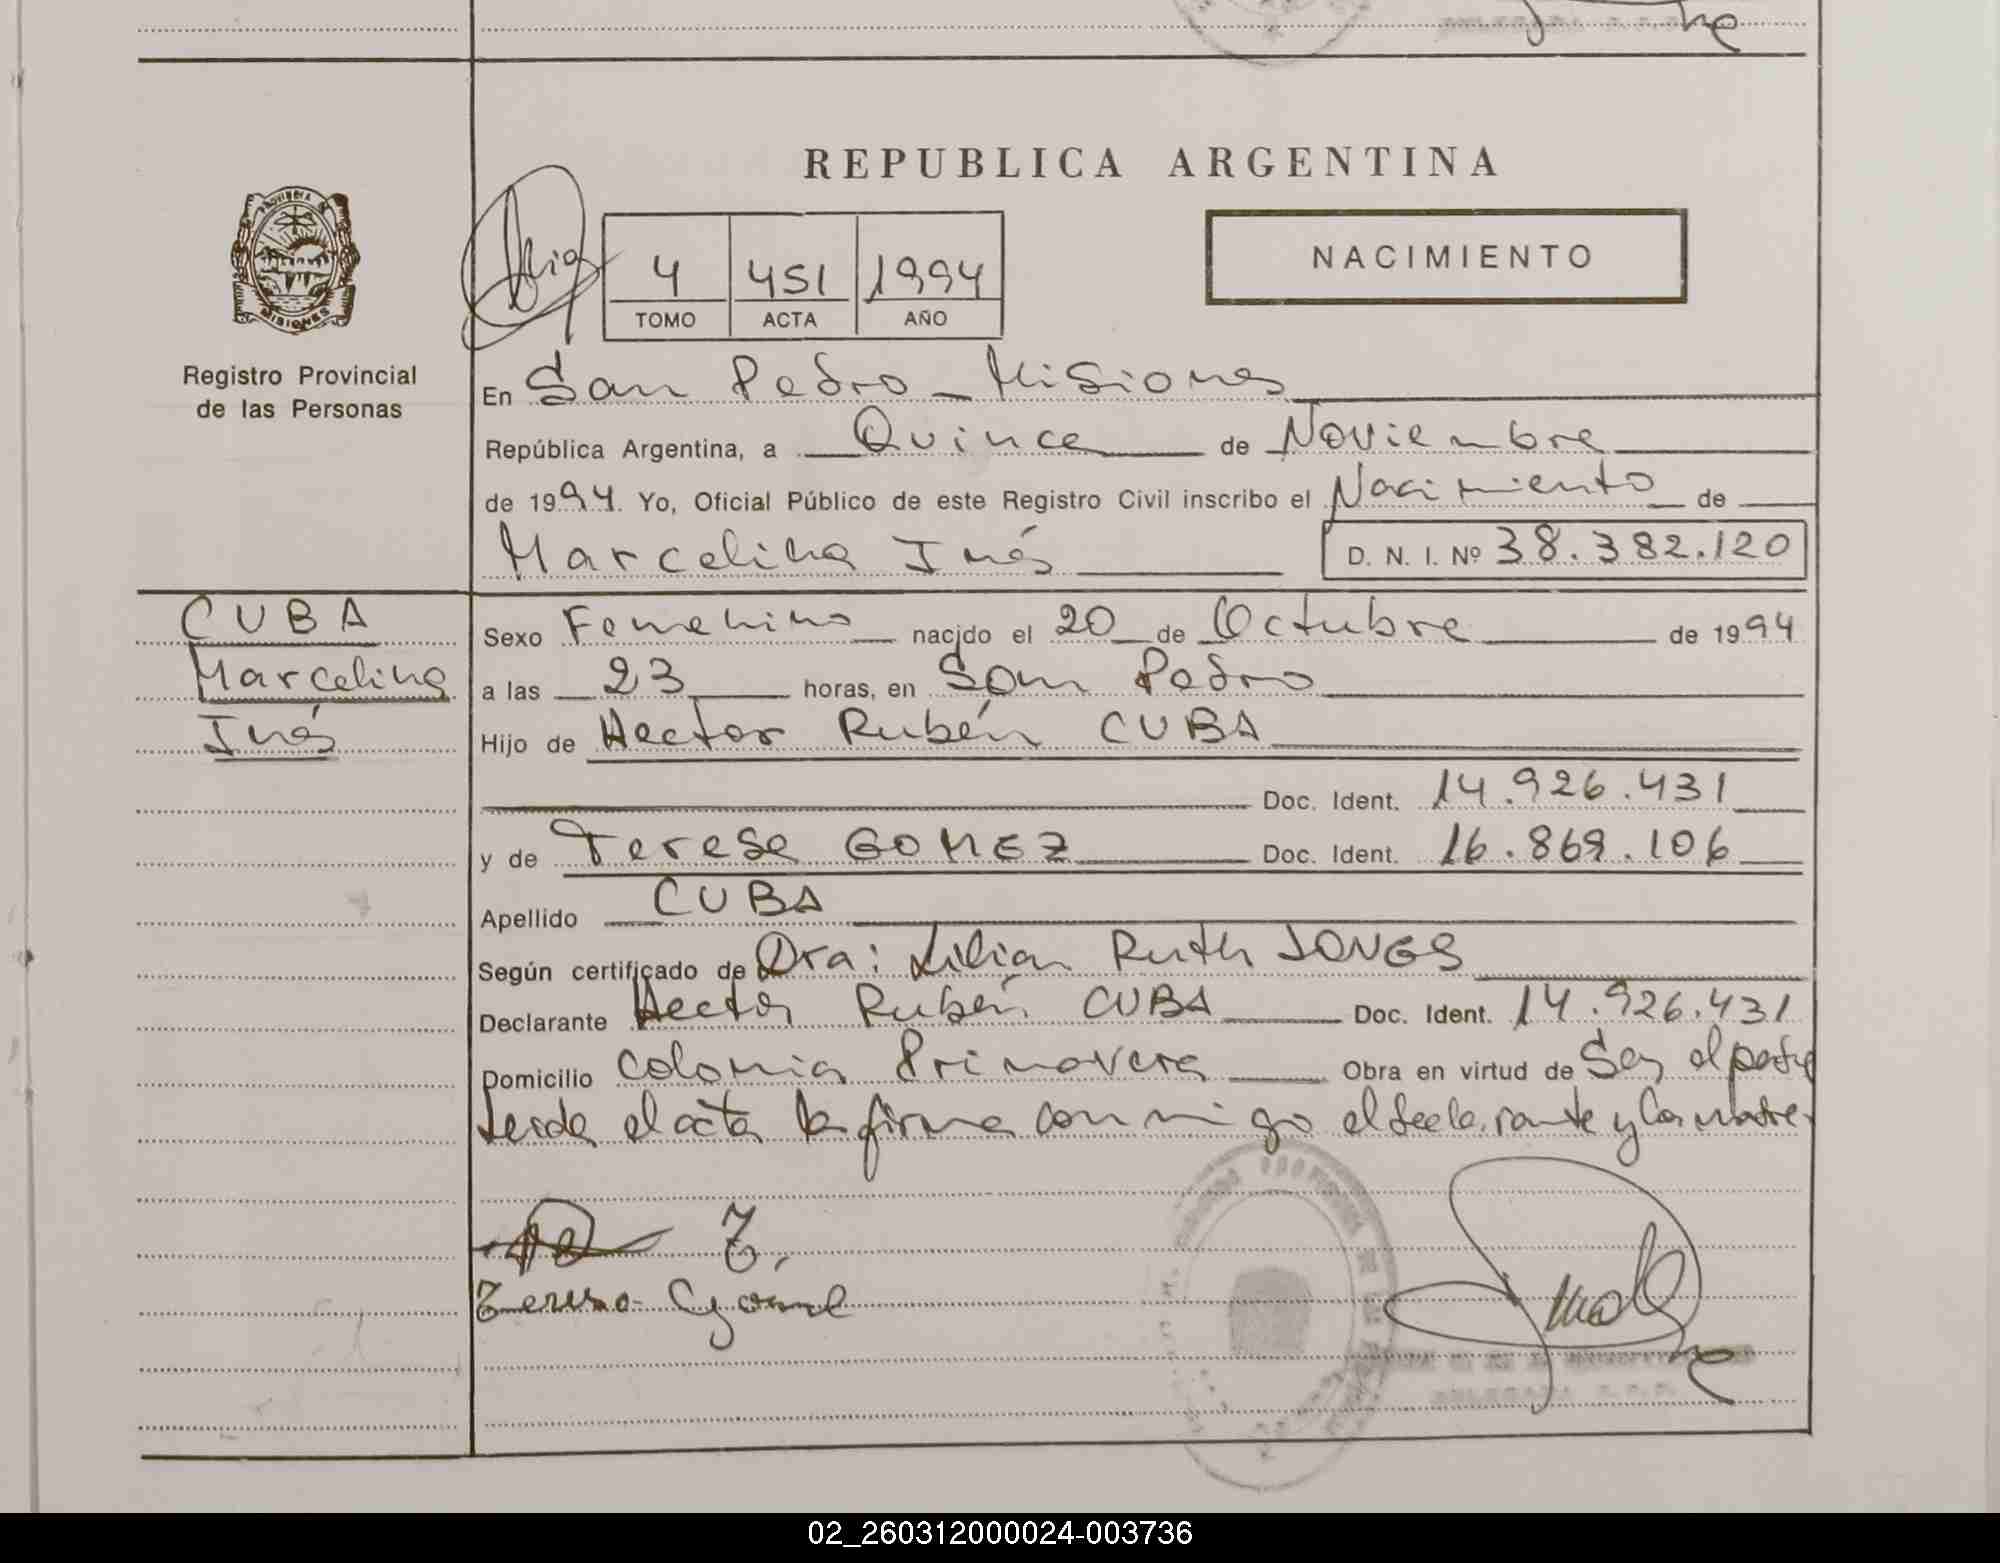 REPUBLICA ARGENTINA
PROVINCIA DE
MISIONES
Registro Provincial
de las Personas
4 451 1994
TOMO ACTA AÑO
NACIMIENTO
En San Pedro - Misiones
República Argentina, a Quince de Noviembre
de 1994. Yo, Oficial Público de este Registro Civil inscribo el Nacimiento de
Marcelina Inés D. N. I. Nº 38.382.120
CUBA
Marcelina
Inés
Sexo Femenino nacido el 20 de Octubre de 1994
a las 23 horas, en San Pedro
Hijo de Hector Rubén CUBA
Doc. Ident. 14.926.431
y de Teresa GOMEZ Doc. Ident. 16.869.106
Apellido CUBA
Según certificado de Dra: Lilian Ruth JONES
Declarante Hector Rubén CUBA Doc. Ident. 14.926.431
Domicilio Colonia Primavera Obra en virtud de Ser el padre
Leida el acta la firma conmigo el declarante y la madre.
02_260312000024-003736